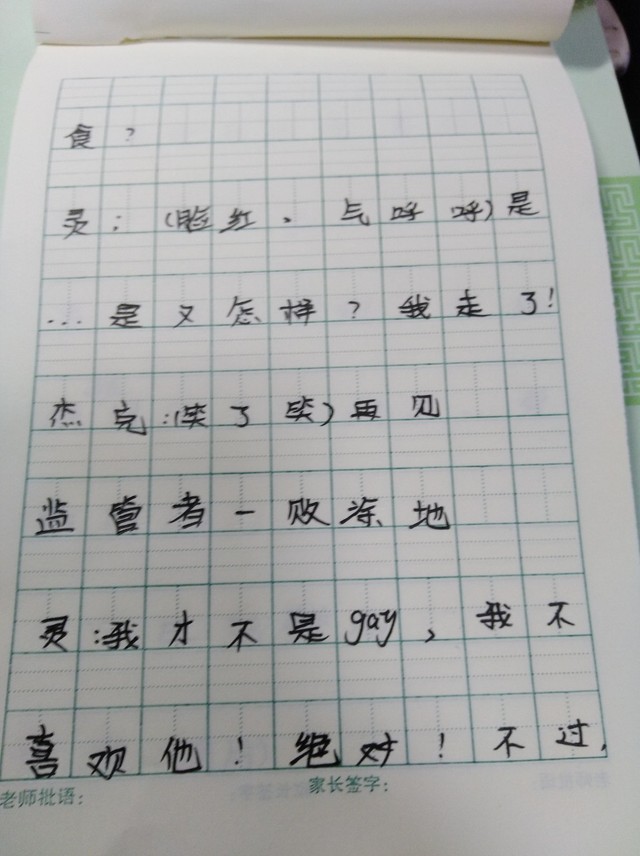 食？
灵：(脸红，气呼呼)是
…是又怎样？我走了！
杰克：(笑了笑)再见
监管者一败涂地
灵：我才不是gay，我不
喜欢他！绝对！不过，
老师批语： 家长签字：